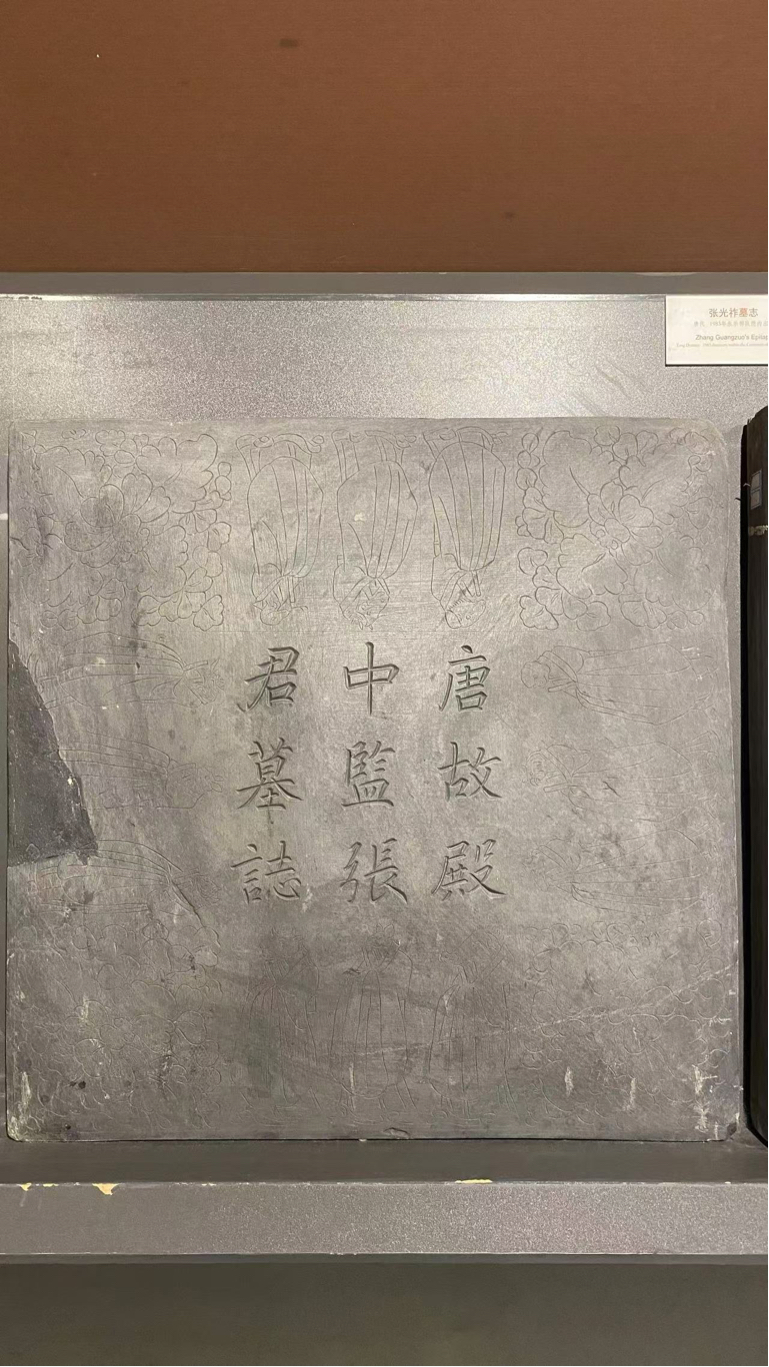 唐故殿
中監張
君墓誌
张光祚墓志
Zhang Guangzuo's Epitap